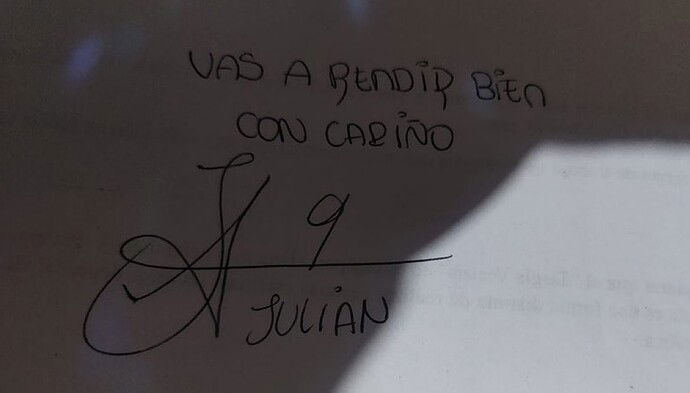 VAS A RENDIR BIEN
CON CARIÑO
9
JULIAN